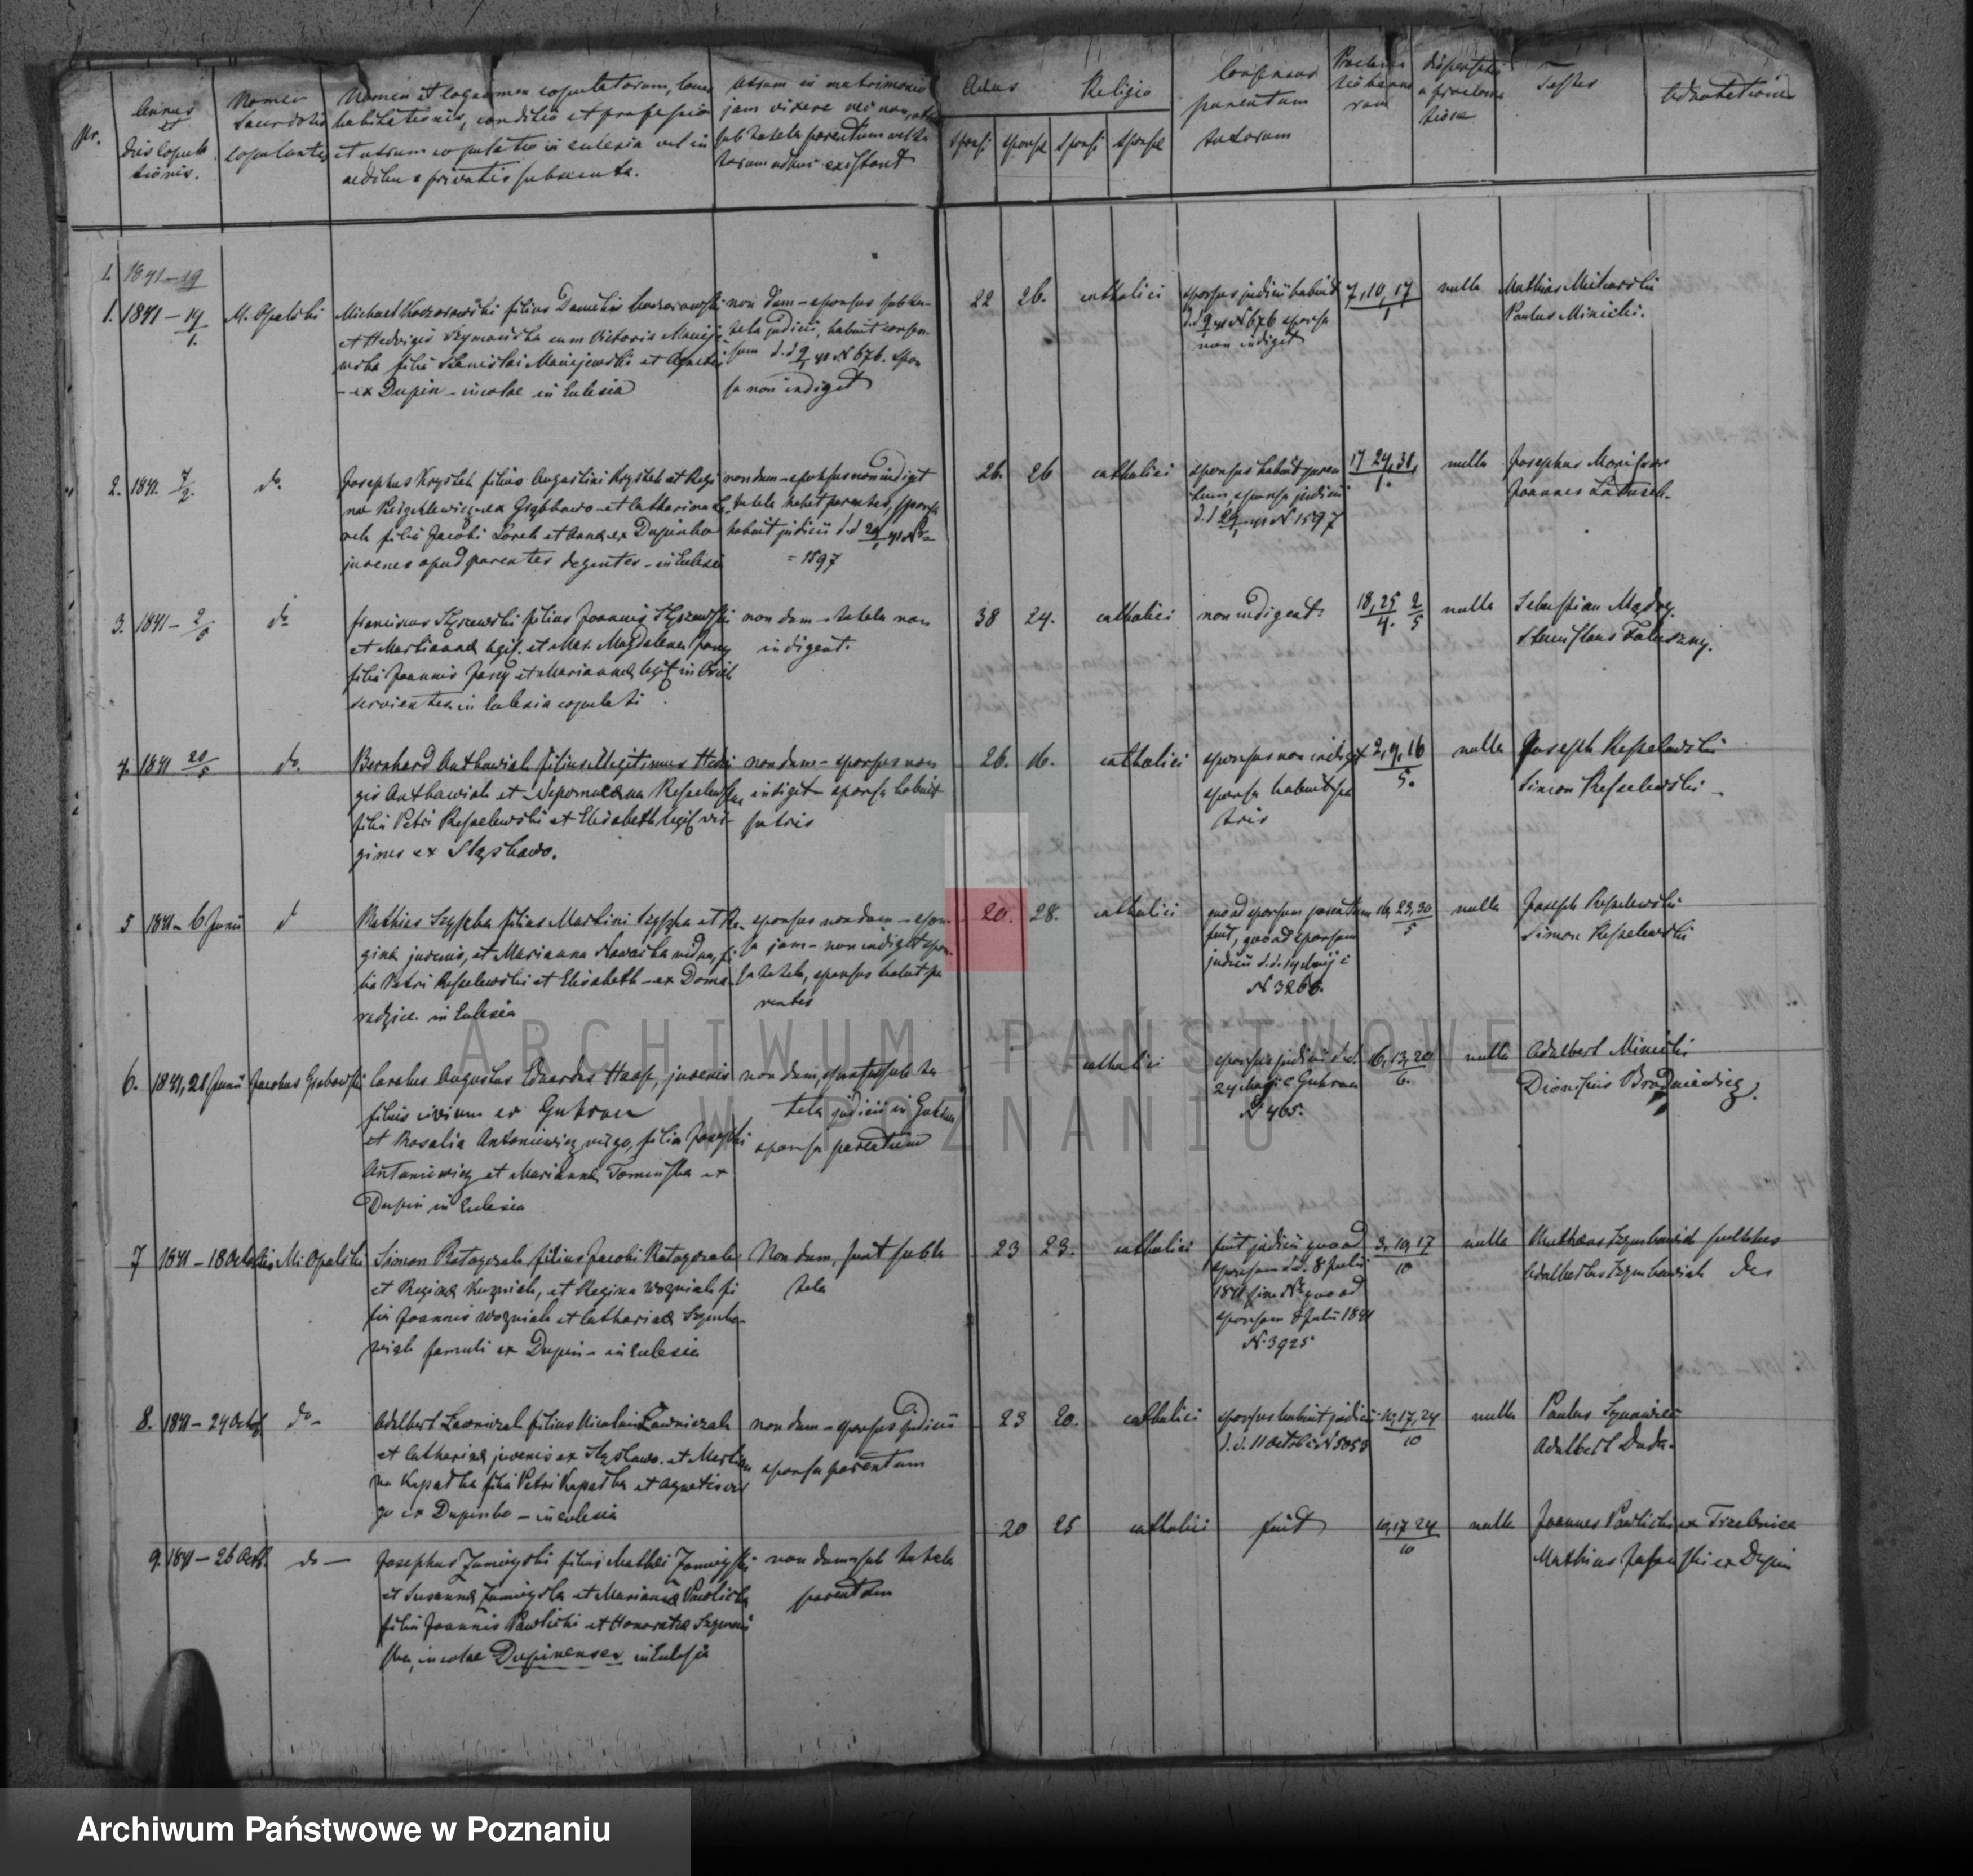 Nr.
Annus
et
dies copula
tionis.
Nomen
Sacerdotis
copulantis
Nomen et cognomen copulatorum, locus
habitationis, conditio et professio
et utrum copulatio in eclesia vel in
aedibus privatis subsecuta.
utrum in matrimonio
jam vixere nec non, utrum
sub tutela parentum vel tu
torum adhuc existant
Aetas
Religio
sponsi sponsae sponsi sponsae
Consensus
parentum
tutorum
dispensatio
Testes
Adnotationes
1. 1841 – 19
1. 1841 – 19/1. M. Opalski
Michael Kaczorowski filius Danielis Kaczorowski
et Hedvigis Szymańska cum Victoria Macieje-
wska filia Stanislai Maciejewski et Agnetis
– ex Dupin – incolae in Eclesia
non dum – sponsus sub tu-
tela judicii, habuit consen-
sum d.d 9/1 41 N 676. spon
sa non indiget
22 26. catholici
sponsus judicii habuit
d.d 9/1 41 N 676 sponsa
non indiget
7, 10, 17/1
nulla
Mathias Mikorski
Paulus Minicki.
2. 1841. 7/2. do.
Josephus Krystek filius Augustini Krystek et Regi
ex Grąbkowo – et Catharina Lo
rek filia Jacobi Lorek et Annae ex Dupinko
juvenes apud parentes degentes – in Eclesia
nondum – sponsus non indiget
tutela habet parentes, sponsa
habuit judicii d.d 29/1 41 N
= 1597
26. 26 catholici
sponsus habuit paren
tum, sponsa judicii
d.d 29/1 41 N 1597
17 24, 31,/1.
nulla
Josephus
Joannes
3. 1841 – 2/5 do
Franciscus Skrzewski filius Joannis Skrzewski
et Mariannae legit. et Mar. Magdalena Jany
filia Joannis Jany et Mariannae legit in
servientes in Eclesia copulati
non dum – tutela non
indigent.
38 24. catholici
non indigent.
18, 25/4. 2/5
nulla
Sebastian Mądry.
Stanislaus Faluszny.
4. 1841 20/5 do.
Bernhard Antkowiak filius illegitimus Hedvi
gis Antkowiak et Nepomucena Respelewska
filia Petri Respelewski et Elisabeth legit vir-
gines ex Stąskowo.
nondum – sponsus non
indiget – sponsa habuit
patris
26. 16. catholici
sponsus non indiget
sponsa habuit pa
tris
2, 9, 16/5.
nulla
Joseph Respelewski
Simon Respelewski
5 1841 – 6 Junii d
Mathias Szyszka filius Martini Szyszka et Re-
ginae juvenis, et Marianna Nawacka vidua, fi
lia Petri Respelewski et Elisabeth – ex Doma-
radzice. in Eclesia
sponsus nondum – spon-
sa jam – non indiget spon
sa tutela, sponsus habet pa
rentes
20. 28. catholici
quoad sponsum parentum
fuit, quoad sponsam
judicii d.d. 14 Maij c
N 3266.
16, 23, 30/5
nulla
Joseph Respelewski
Simon Respelewski
6. 1841, 21 Junii Jacobus Grabowski
Carolus Augustus Eduardus Haase, juvenis
filius civium ex Guhrau
et Rosalia Antoniewicz virgo, filia Josephi
Antoniewicz et Mariannae Tomińska ex
Dupin in Eclesia
non dum, sponsus sub tu
tela judicii in Guhrau
sponsa parentum
catholici
sponsus judicii d.d.
24 Maji c Guhrau
N 465.
6, 13, 20/6.
nulla
Adalbert Minicki
Dionisius Brodniewicz.
7 1841 – 18 Octobris M. Opalski
Simon Ratajczak filius Jacobi Ratajczak
et Reginae Kuzniak, et Regina Wozniak fi
lia Joannis Wozniak et Cathariae Szymko-
wiak famuli ex Dupin – in Eclesia
Non dum, sunt sub tu
tela
23 23. catholici
fuit judicii quoad
sponsum d.d. 8 Julii
1841 sine N quoad
sponsam 8 Julii 1841
N. 3925
3, 10, 17/10
nulla
Mathaeus Szymkowiak
Adalbertus Szymkowiak
8. 1841 – 24 Octob do –
Adalbert Ławniczak filius Nicolai Ławniczak
et Catharinae juvenis ex Stąskowo. et Marian
na Kapałka filia Petri Kapałka et Agnetis vir
go ex Dupinko – in eclesia
nondum – sponsus judicii
sponsa parentum
23 20. catholici
sponsus habuit judicii
d.d. 11 Octobris N 5053
10, 17, 24/10
nulla
Paulus
Adalbert Duda.
9. 1841 – 26 Octb. do —
Josephus Zamoyski filius Mathei Zamoyski
et Susannae Zamoyska et Marianna Pawlicka
filia Joannis Pawlicki et Honoratae
incolae Dupinenses in Eclesia
non dum sub tutela
parentum
20 25 catholici
fuit
10, 17 24/10
nulla
Joannes Pawlicki ex Trzebnica
Mathias ex Dupin
ARCHIWUM PAŃSTWOWE
W POZNANIU
Archiwum Państwowe w Poznaniu